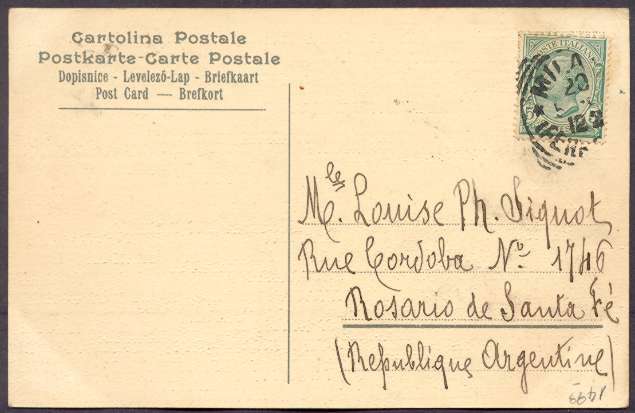 Cartolina Postale
Postkarte-Carte Postale
Dopisnice - Levelező-Lap - Briefkaart
Post Card — Brefkort
POSTE ITALIANE
MILA
20
12 2
(FERR
Mlle. Louise Ph. Signot
Rue Cordoba No 1746
Rosario de Santa Fé
(Republique Argentine)
1493